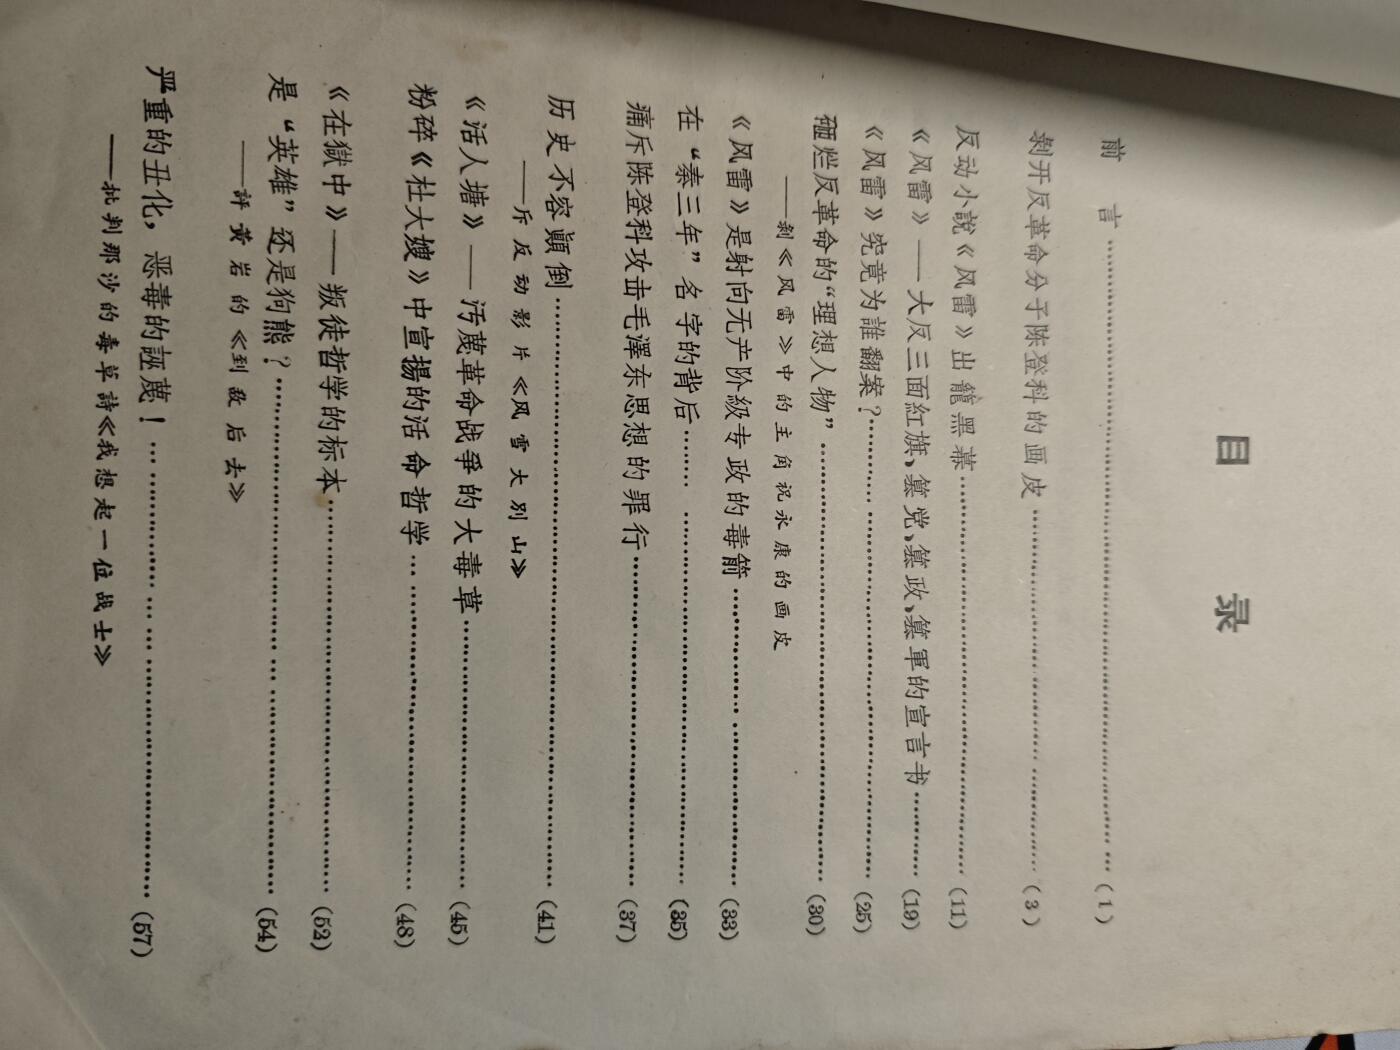 目 录
前 言 …………………………………………………………… (1)
剝开反革命分子陈登科的画皮 ……………………………… (3)
反动小說《风雷》出籠黑幕 ………………………………… (11)
《风雷》——大反三面紅旗、篡党、篡政、篡軍的宣言书 ……… (19)
《风雷》究竟为誰翻案？ …………………………………… (25)
砸烂反革命的“理想人物” …………………………………… (30)
——剝《风雷》中的主角祝永康的画皮
《风雷》是射向无产阶級专政的毒箭 ………………………… (33)
在“秦三年”名字的背后 ……………………………………… (35)
痛斥陈登科攻击毛澤东思想的罪行 ………………………… (37)
历史不容颠倒 ………………………………………………… (41)
——斥反动影片《风雪大别山》
《活人塘》——汚蔑革命战爭的大毒草 ……………………… (45)
粉碎《杜大嫂》中宣揚的活命哲学 …………………………… (48)
《在獄中》——叛徒哲学的标本 ……………………………… (52)
是“英雄”还是狗熊？ ………………………………………… (54)
——評黄岩的《到敌后去》
严重的丑化，恶毒的誣蔑！ ………………………………… (57)
——批判那沙的毒草詩《我想起一位战士》